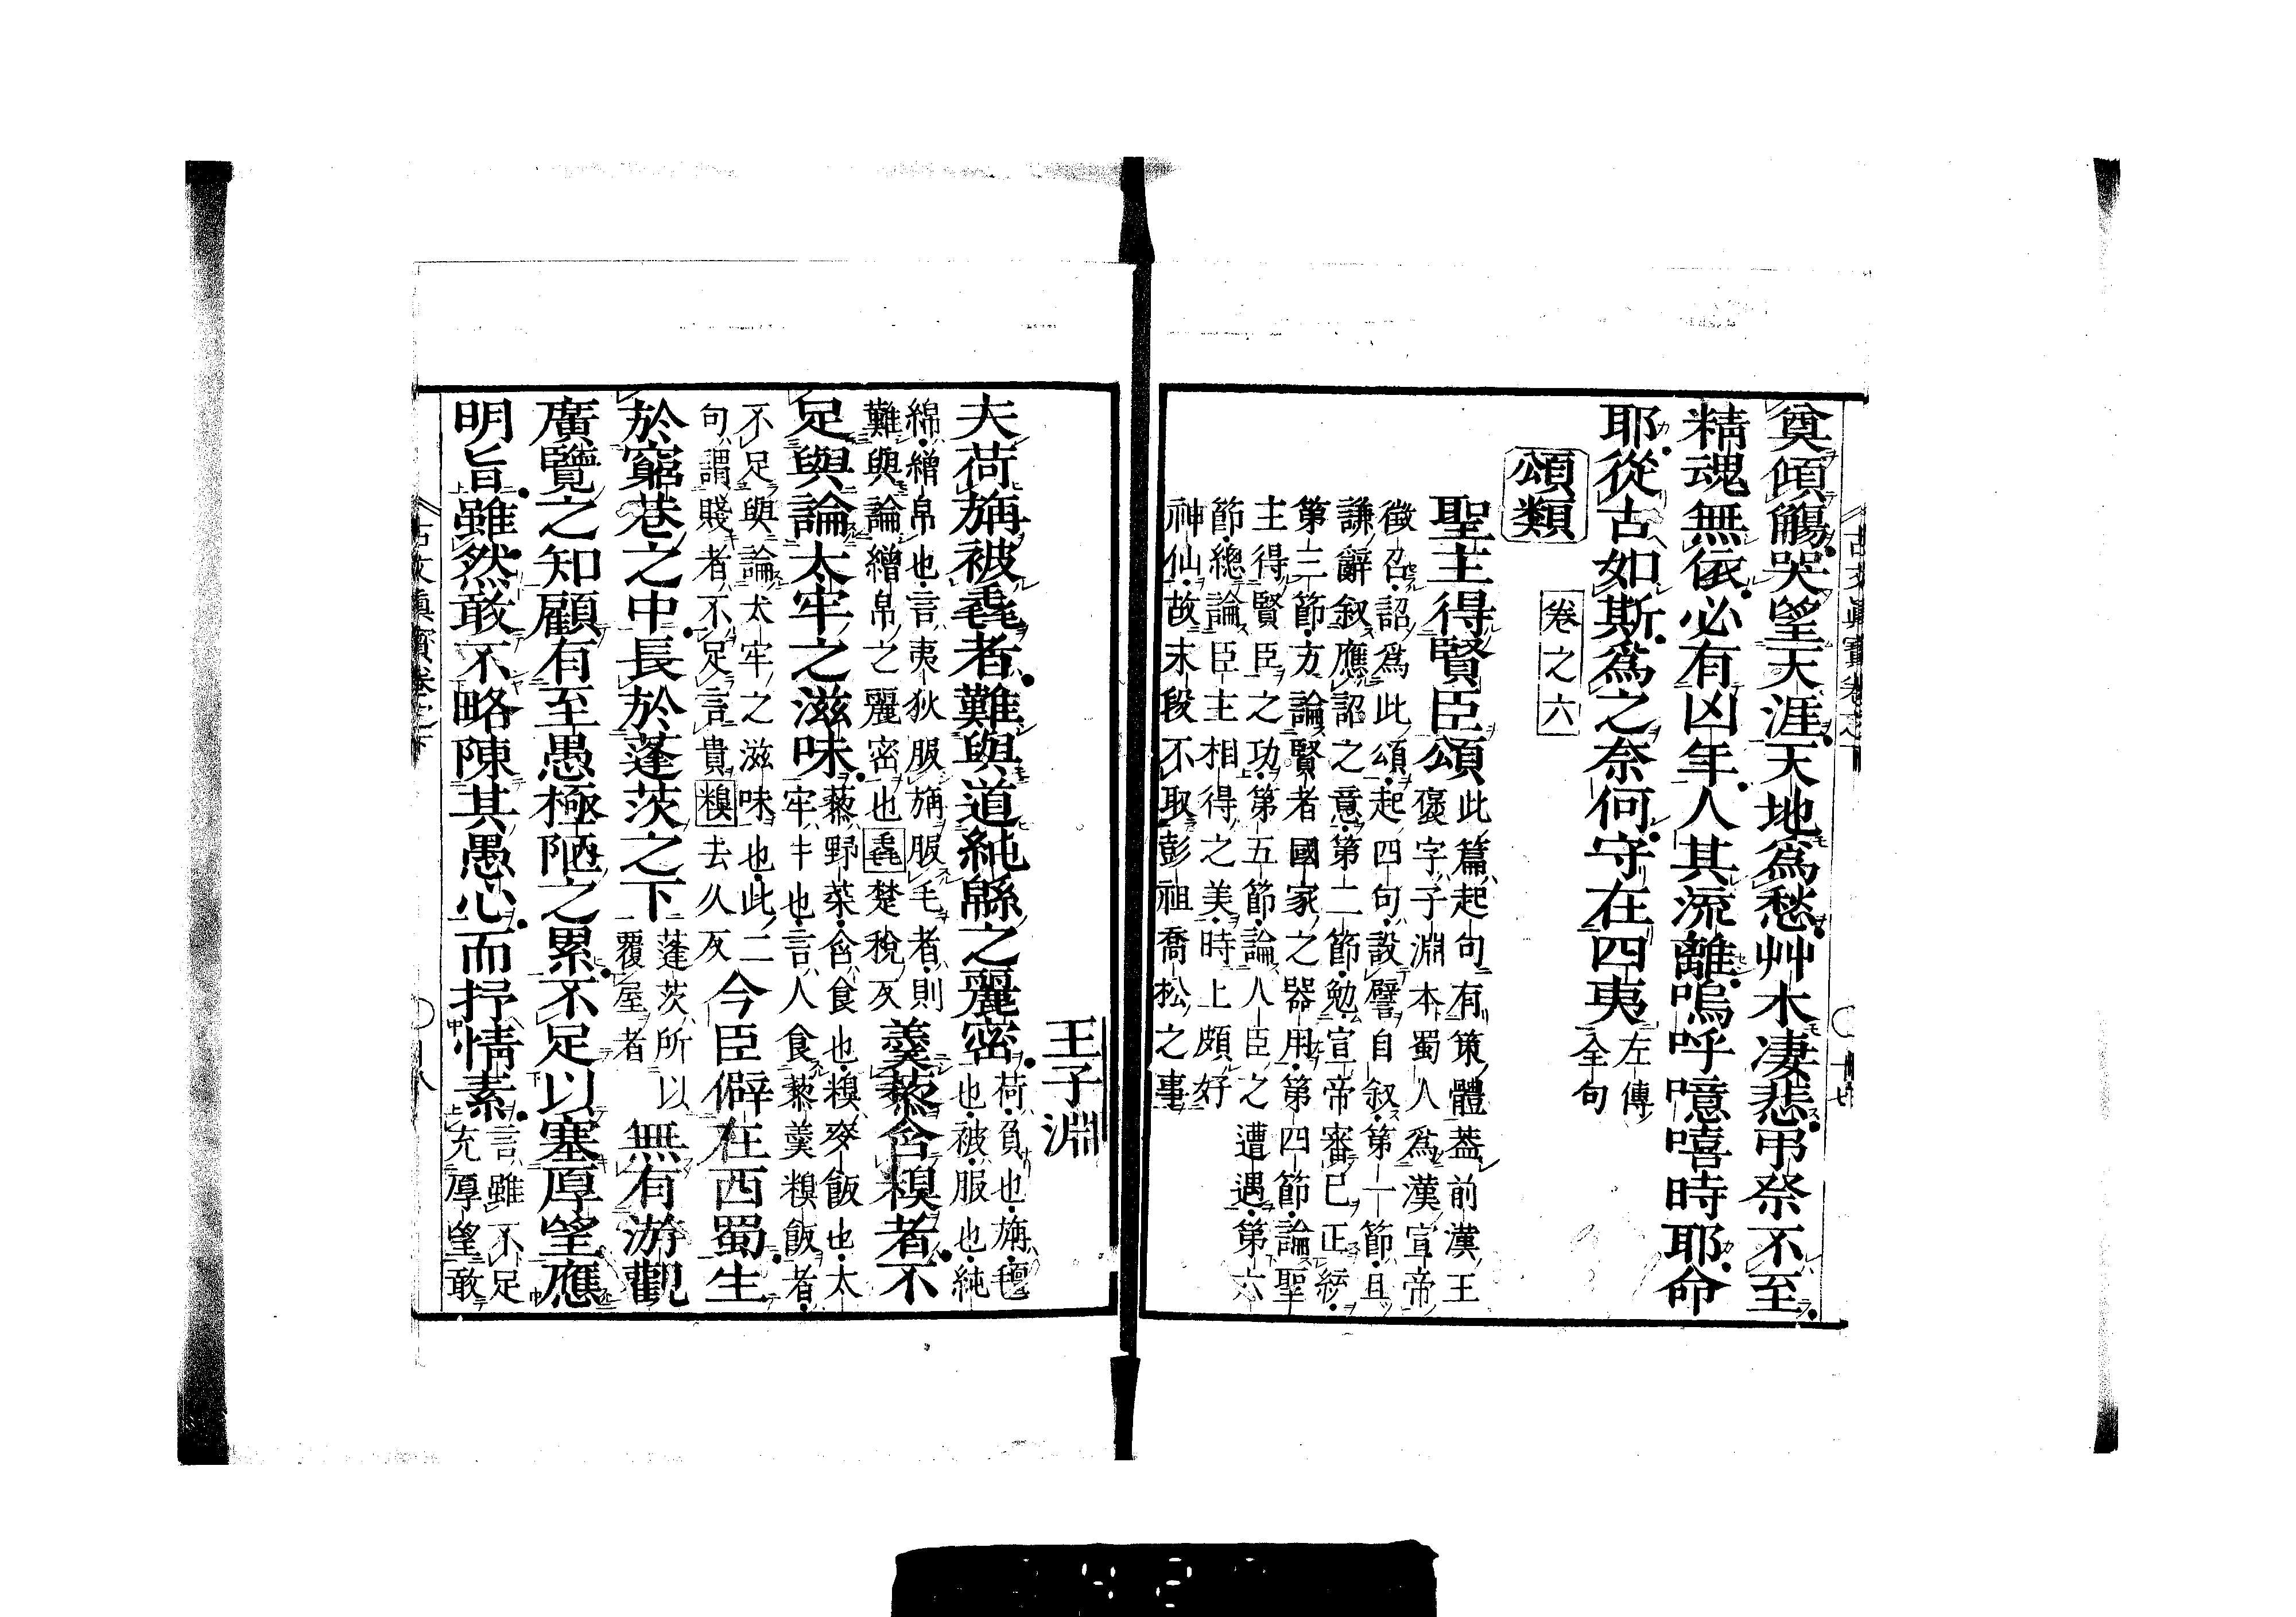 古文眞寳卷之下 十七
奠傾觴哭望天涯天地爲愁艸木凄悲弔祭不至
精魂無依必有凶年人其流離嗚呼噫嘻時耶命
耶從古如斯爲之奈何守在四夷左傳全句
頌類
卷之六
聖主得賢臣頌此篇起句有策體葢前漢王
褒字子淵本蜀人爲漢宣帝
徵召詔爲此頌起四句設譬自叙第一節且
謙辭叙應詔之意第二節勉宣帝審己正統
第三節方論賢者國家之器用第四節論聖
主得賢臣之功第五節論人臣之遭遇第六
節總論臣主相得之美時上頗好
神仙故末段不取彭祖喬松之事
王子淵
夫荷旃被毳者難與道純緜之麗密荷負也旃氊也被服也純
綿繒帛也言夷狄服旃服毛者則
難與論繒帛之麗密也毳楚稅反羹藜含糗者不
足與論太牢之滋味藜野菜含食也糗麥飯也太
牢牛也言人食藜羹糗飯者
不足與論太牢之滋味也此二
句謂賤者不足言貴糗去久反今臣僻在西蜀生
於窮巷之中長於蓬茨之下蓬茨所以覆屋者無有游觀
廣覽之知顧有至愚極陋之累不足以塞厚望應
明旨雖然敢不略陳其愚心而抒情素言雖不足
充厚望敢
古文眞寳卷之下 十八